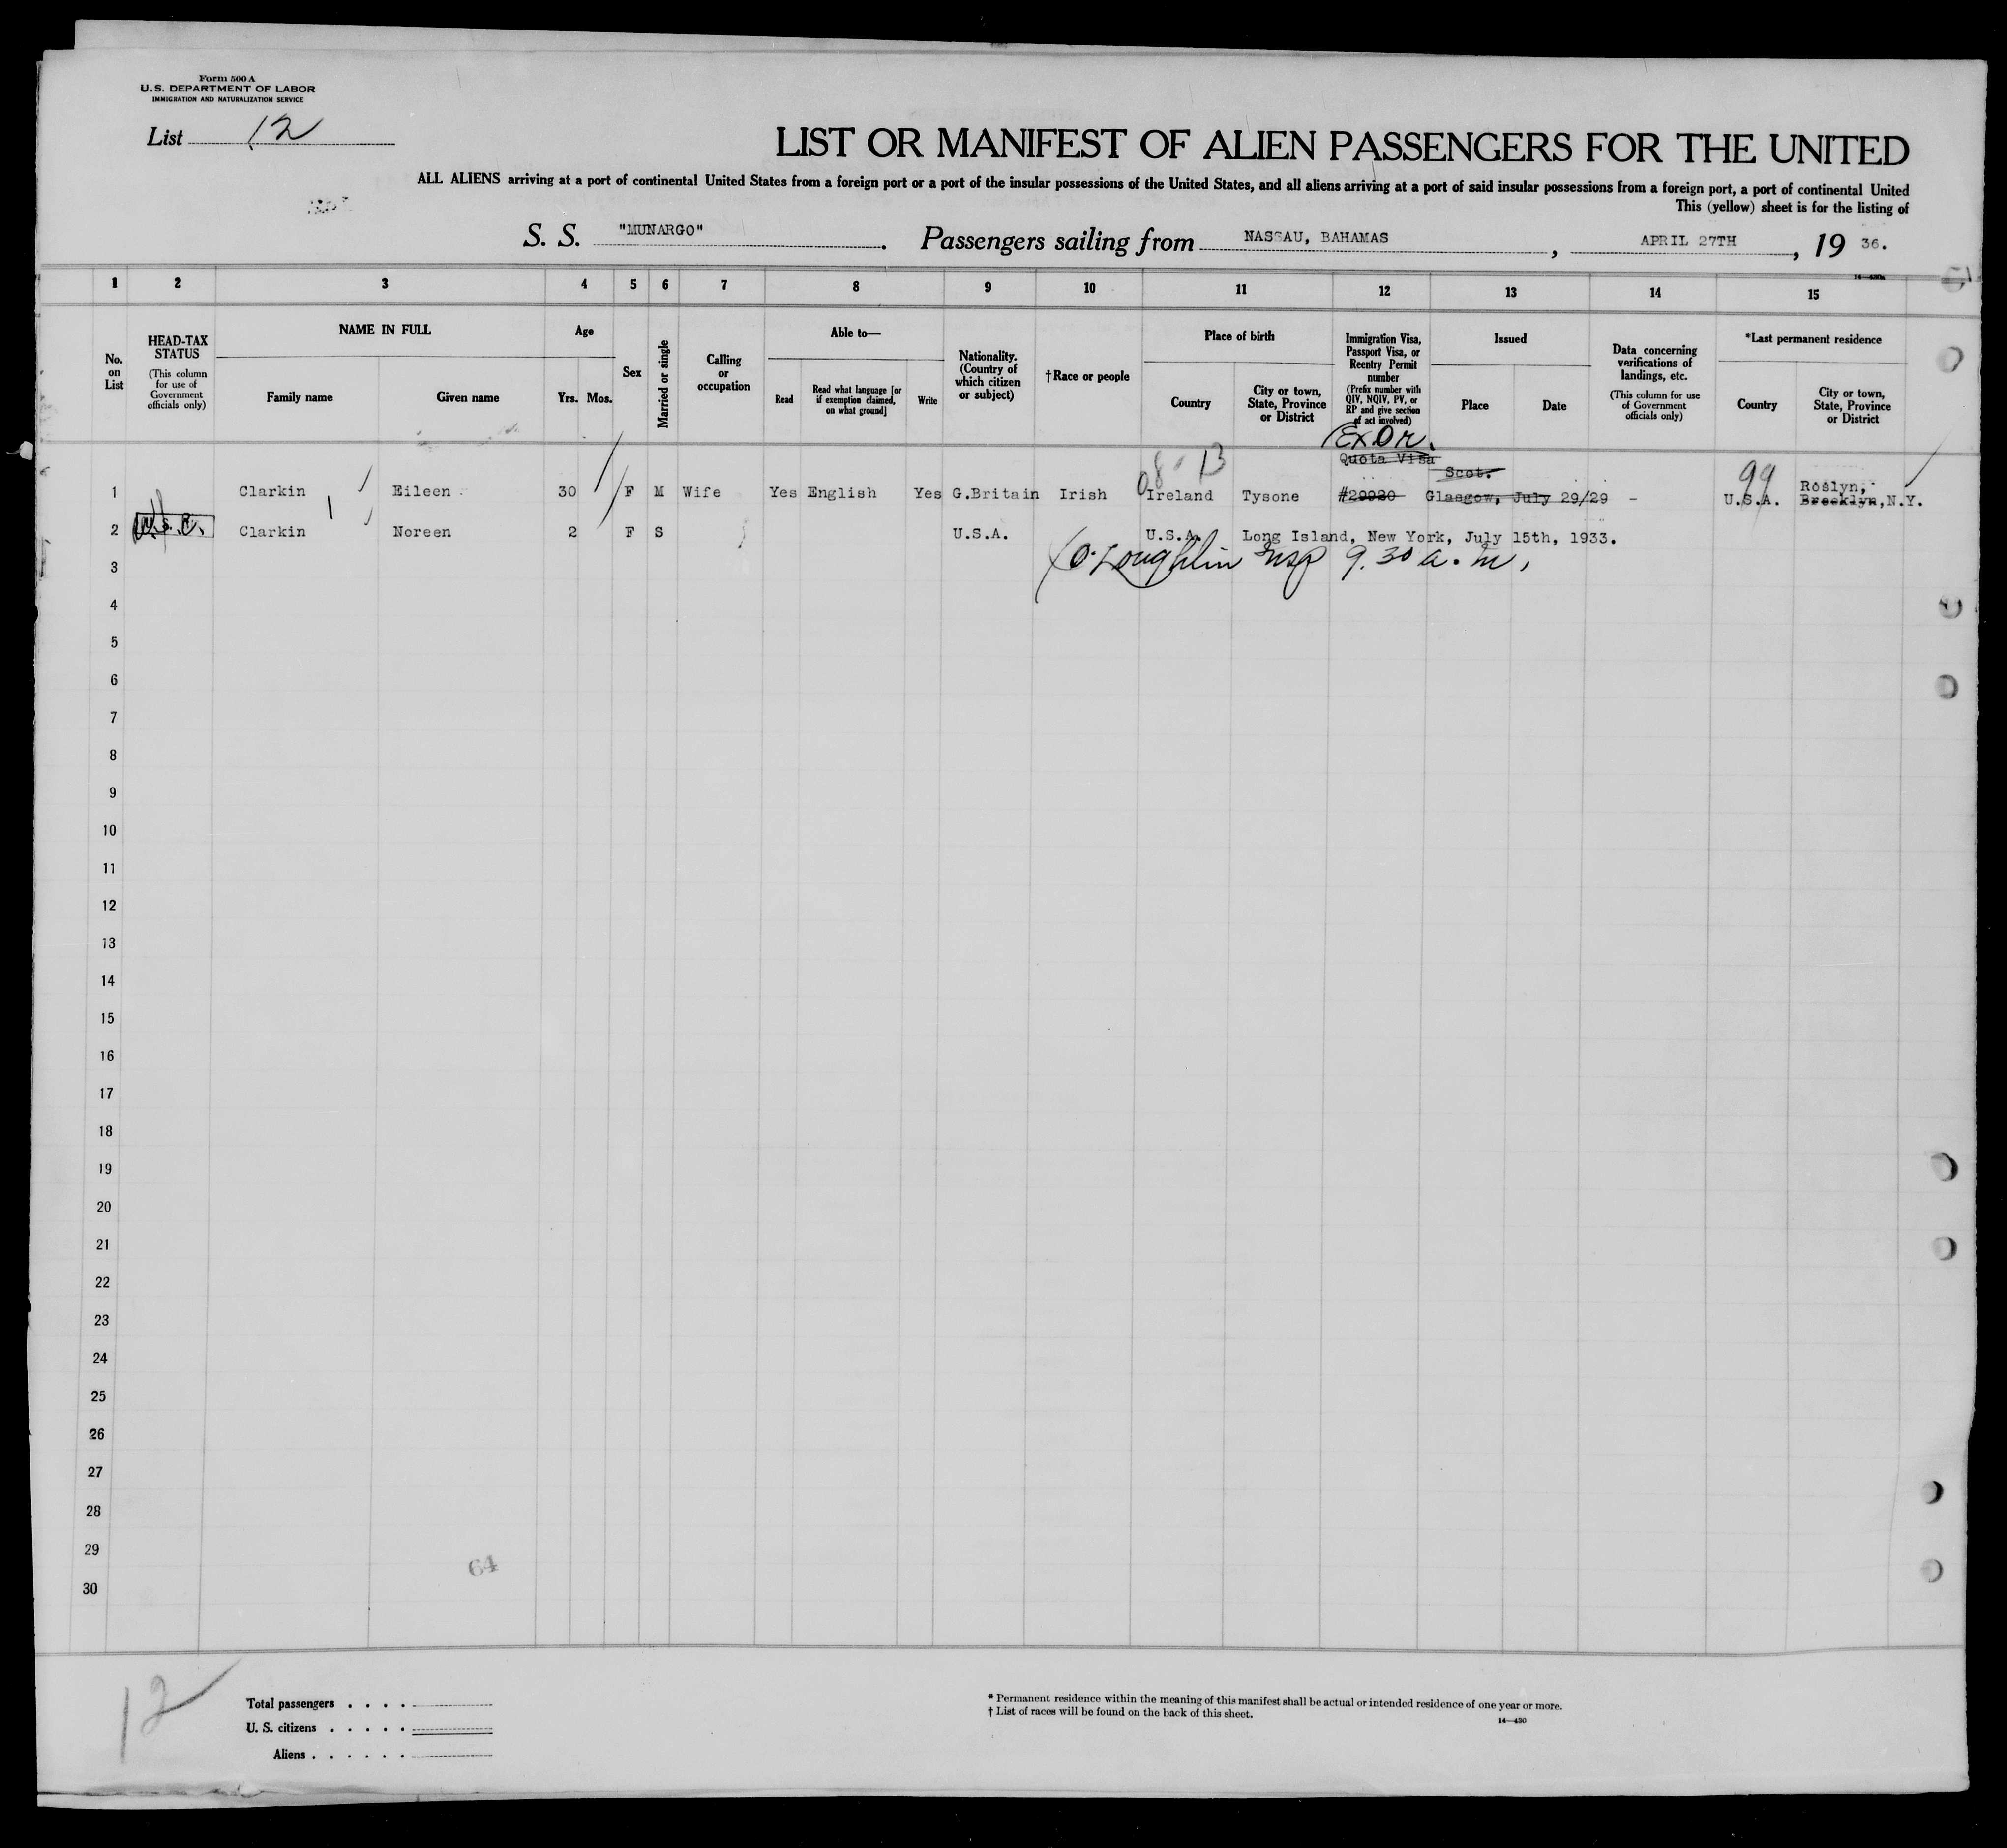 Form 500 A
U.S. DEPARTMENT OF LABOR
IMMIGRATION AND NATURALIZATION SERVICE
List 12
LIST OR MANIFEST OF ALIEN PASSENGERS FOR THE UNITED
ALL ALIENS arriving at a port of continental United States from a foreign port or a port of the insular possessions of the United States, and all aliens arriving at a port of said insular possessions from a foreign port, a port of continental United
This (yellow) sheet is for the listing of
S. S. "MUNARGO". Passengers sailing from NASSAU, BAHAMAS, APRIL 27TH, 19 36.
1 2 3 4 5 6 7 8 9 10 11 12 13 14 15
No. on List
HEAD-TAX STATUS
(This column for use of Government officials only)
NAME IN FULL
Family name
Given name
Age
Yrs. Mos.
Sex
Married or single
Calling or occupation
Able to—
Read
Read what language [or if exemption claimed, on what ground]
Write
Nationality. (Country of which citizen or subject)
†Race or people
Place of birth
Country
City or town, State, Province or District
Immigration Visa, Passport Visa, or Reentry Permit number
(Prefix number with QIV, NQIV, PV, or RP and give section of act involved)
Issued
Place
Date
Data concerning verifications of landings, etc.
(This column for use of Government officials only)
*Last permanent residence
Country
City or town, State, Province or District
Quota Visa
Scot.
08 13
99
Roslyn,
1 Clarkin Eileen 30 F M Wife Yes English Yes G.Britain Irish Ireland Tysone #29920 Glasgow, July 29/29 - U.S.A. Brooklyn, N.Y.
2 U.S.C. Clarkin Noreen 2 F S U.S.A. U.S.A. Long Island, New York, July 15th, 1933.
3 O'Loughlin Insp 9.30 a.m.
4
5
6
7
8
9
10
11
12
13
14
15
16
17
18
19
20
21
22
23
24
25
26
27
28
29
64
30
12
Total passengers . . . .
U. S. citizens . . . . .
Aliens . . . . . .
* Permanent residence within the meaning of this manifest shall be actual or intended residence of one year or more.
† List of races will be found on the back of this sheet.
14—430